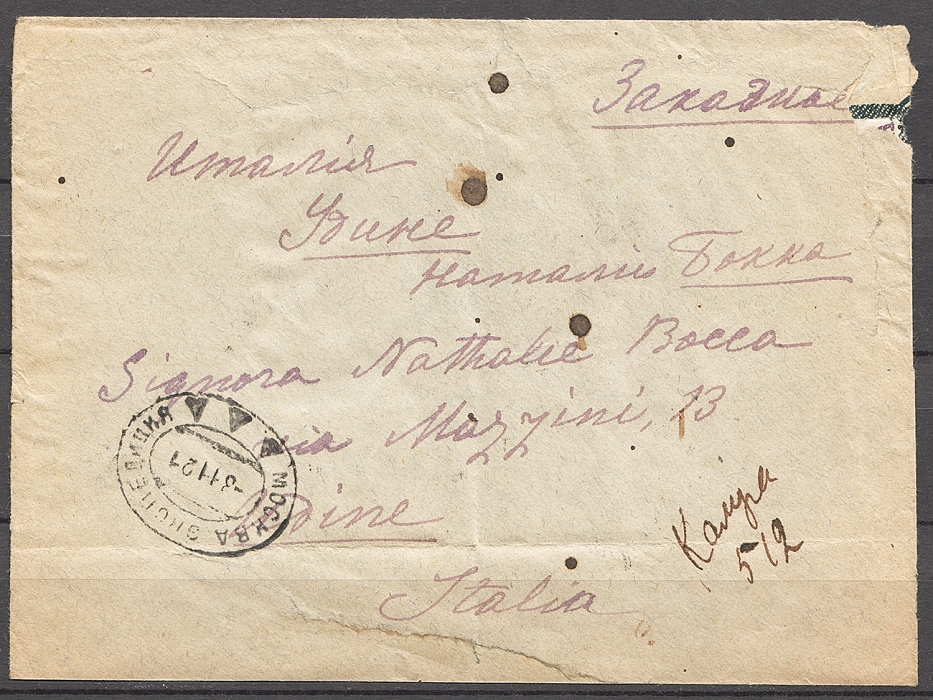 Заказное
Италія
Удине
Наталіи Бокка
Signora Nathalie Bocca
via Mazzini, 13
Udine
Italia
МОСКВА ЭКСПЕДИЦИЯ
-3 11 21
512